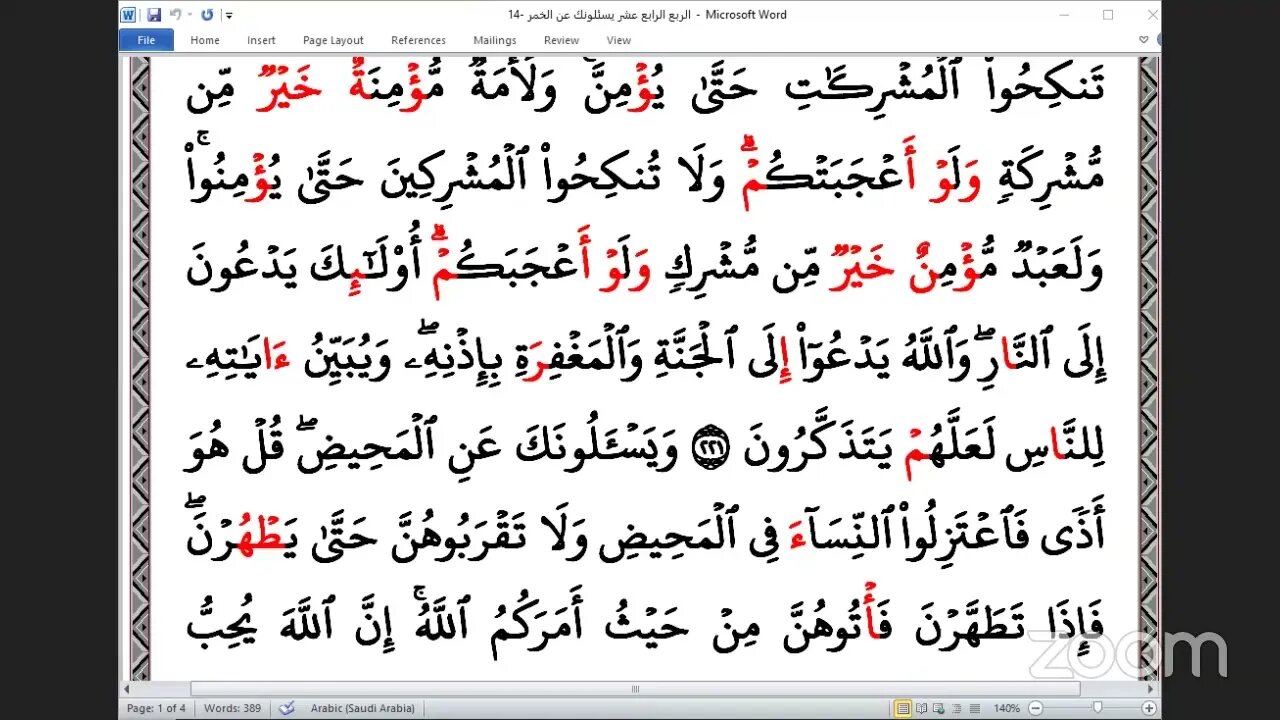 الربع الرابع عشر يسئلونك عن الخمر -14 - Microsoft Word
File Home Insert Page Layout References Mailings Review View
تَنكِحُوا۟ ٱلْمُشْرِكَـٰتِ حَتَّىٰ يُؤْمِنَّ ۚ وَلَأَمَةٌ مُّؤْمِنَةٌ خَيْرٌ مِّن
مُّشْرِكَةٍ وَلَوْ أَعْجَبَتْكُمْ ۗ وَلَا تُنكِحُوا۟ ٱلْمُشْرِكِينَ حَتَّىٰ يُؤْمِنُوا۟ ۚ
وَلَعَبْدٌ مُّؤْمِنٌ خَيْرٌ مِّن مُّشْرِكٍ وَلَوْ أَعْجَبَكُمْ ۗ أُو۟لَـٰٓئِكَ يَدْعُونَ
إِلَى ٱلنَّارِ ۖ وَٱللَّهُ يَدْعُوٓا۟ إِلَى ٱلْجَنَّةِ وَٱلْمَغْفِرَةِ بِإِذْنِهِۦ ۖ وَيُبَيِّنُ ءَايَـٰتِهِۦ
لِلنَّاسِ لَعَلَّهُمْ يَتَذَكَّرُونَ ٢٢١ وَيَسْـَٔلُونَكَ عَنِ ٱلْمَحِيضِ ۖ قُلْ هُوَ
أَذًى فَٱعْتَزِلُوا۟ ٱلنِّسَآءَ فِى ٱلْمَحِيضِ وَلَا تَقْرَبُوهُنَّ حَتَّىٰ يَطْهُرْنَ ۖ
فَإِذَا تَطَهَّرْنَ فَأْتُوهُنَّ مِنْ حَيْثُ أَمَرَكُمُ ٱللَّهُ ۚ إِنَّ ٱللَّهَ يُحِبُّ
zoom
Page: 1 of 4 Words: 389 Arabic (Saudi Arabia) 140%